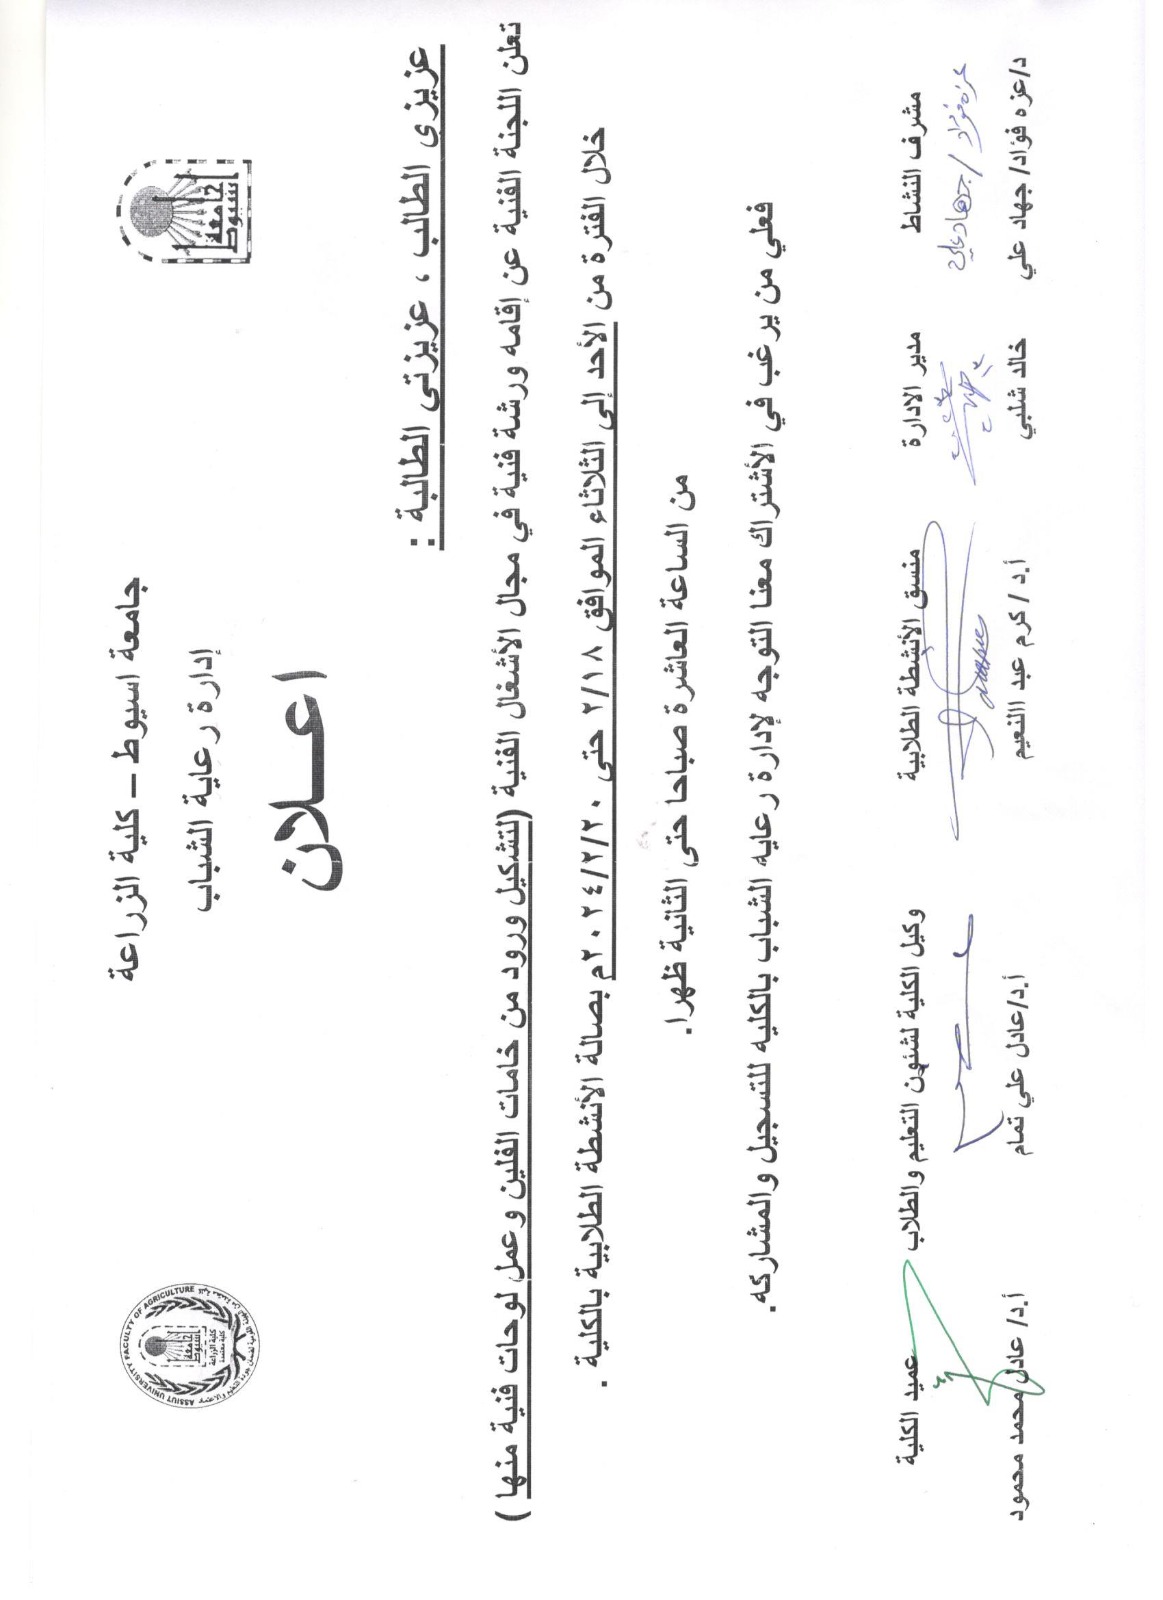 جامعة اسيوط – كلية الزراعة
إدارة رعاية الشباب
جامعة
اسيوط
ASSIUT UNIVERSITY FACULTY OF AGRICULTURE
اعـــلان
عزيزى الطالب ، عزيزتى الطالبة :
تعلن اللجنة الفنية عن إقامه ورشة فنية في مجال الأشغال الفنية (لتشكيل ورود من خامات الفلين وعمل لوحات فنية منها )
خلال الفترة من الأحد إلى الثلاثاء الموافق ٢/١٨ حتى ٢٠٢٤/٢/٢٠م بصالة الأنشطة الطلابية بالكلية .
من الساعة العاشرة صباحا حتى الثانية ظهرا.
فعلي من يرغب في الأشتراك معنا التوجه لإدارة رعايه الشباب بالكليه للتسجيل والمشاركه.
مشرف النشاط مدير الادارة منسق الأنشطة الطلابية وكيل الكلية لشئون التعليم والطلاب عميد الكلية
عزه فؤاد / جهاد علي
د/عزه فؤاد/ جهاد علي خالد شلبي أ.د / كرم عبد االنعيم أ.د/عادل علي تمام أ.د/ عادل محمد محمود